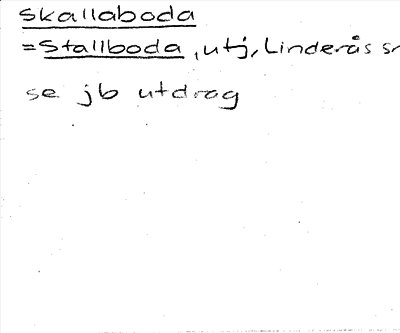 Skallaboda
=Stallboda, utj, Linderås sn
se jb utdrag